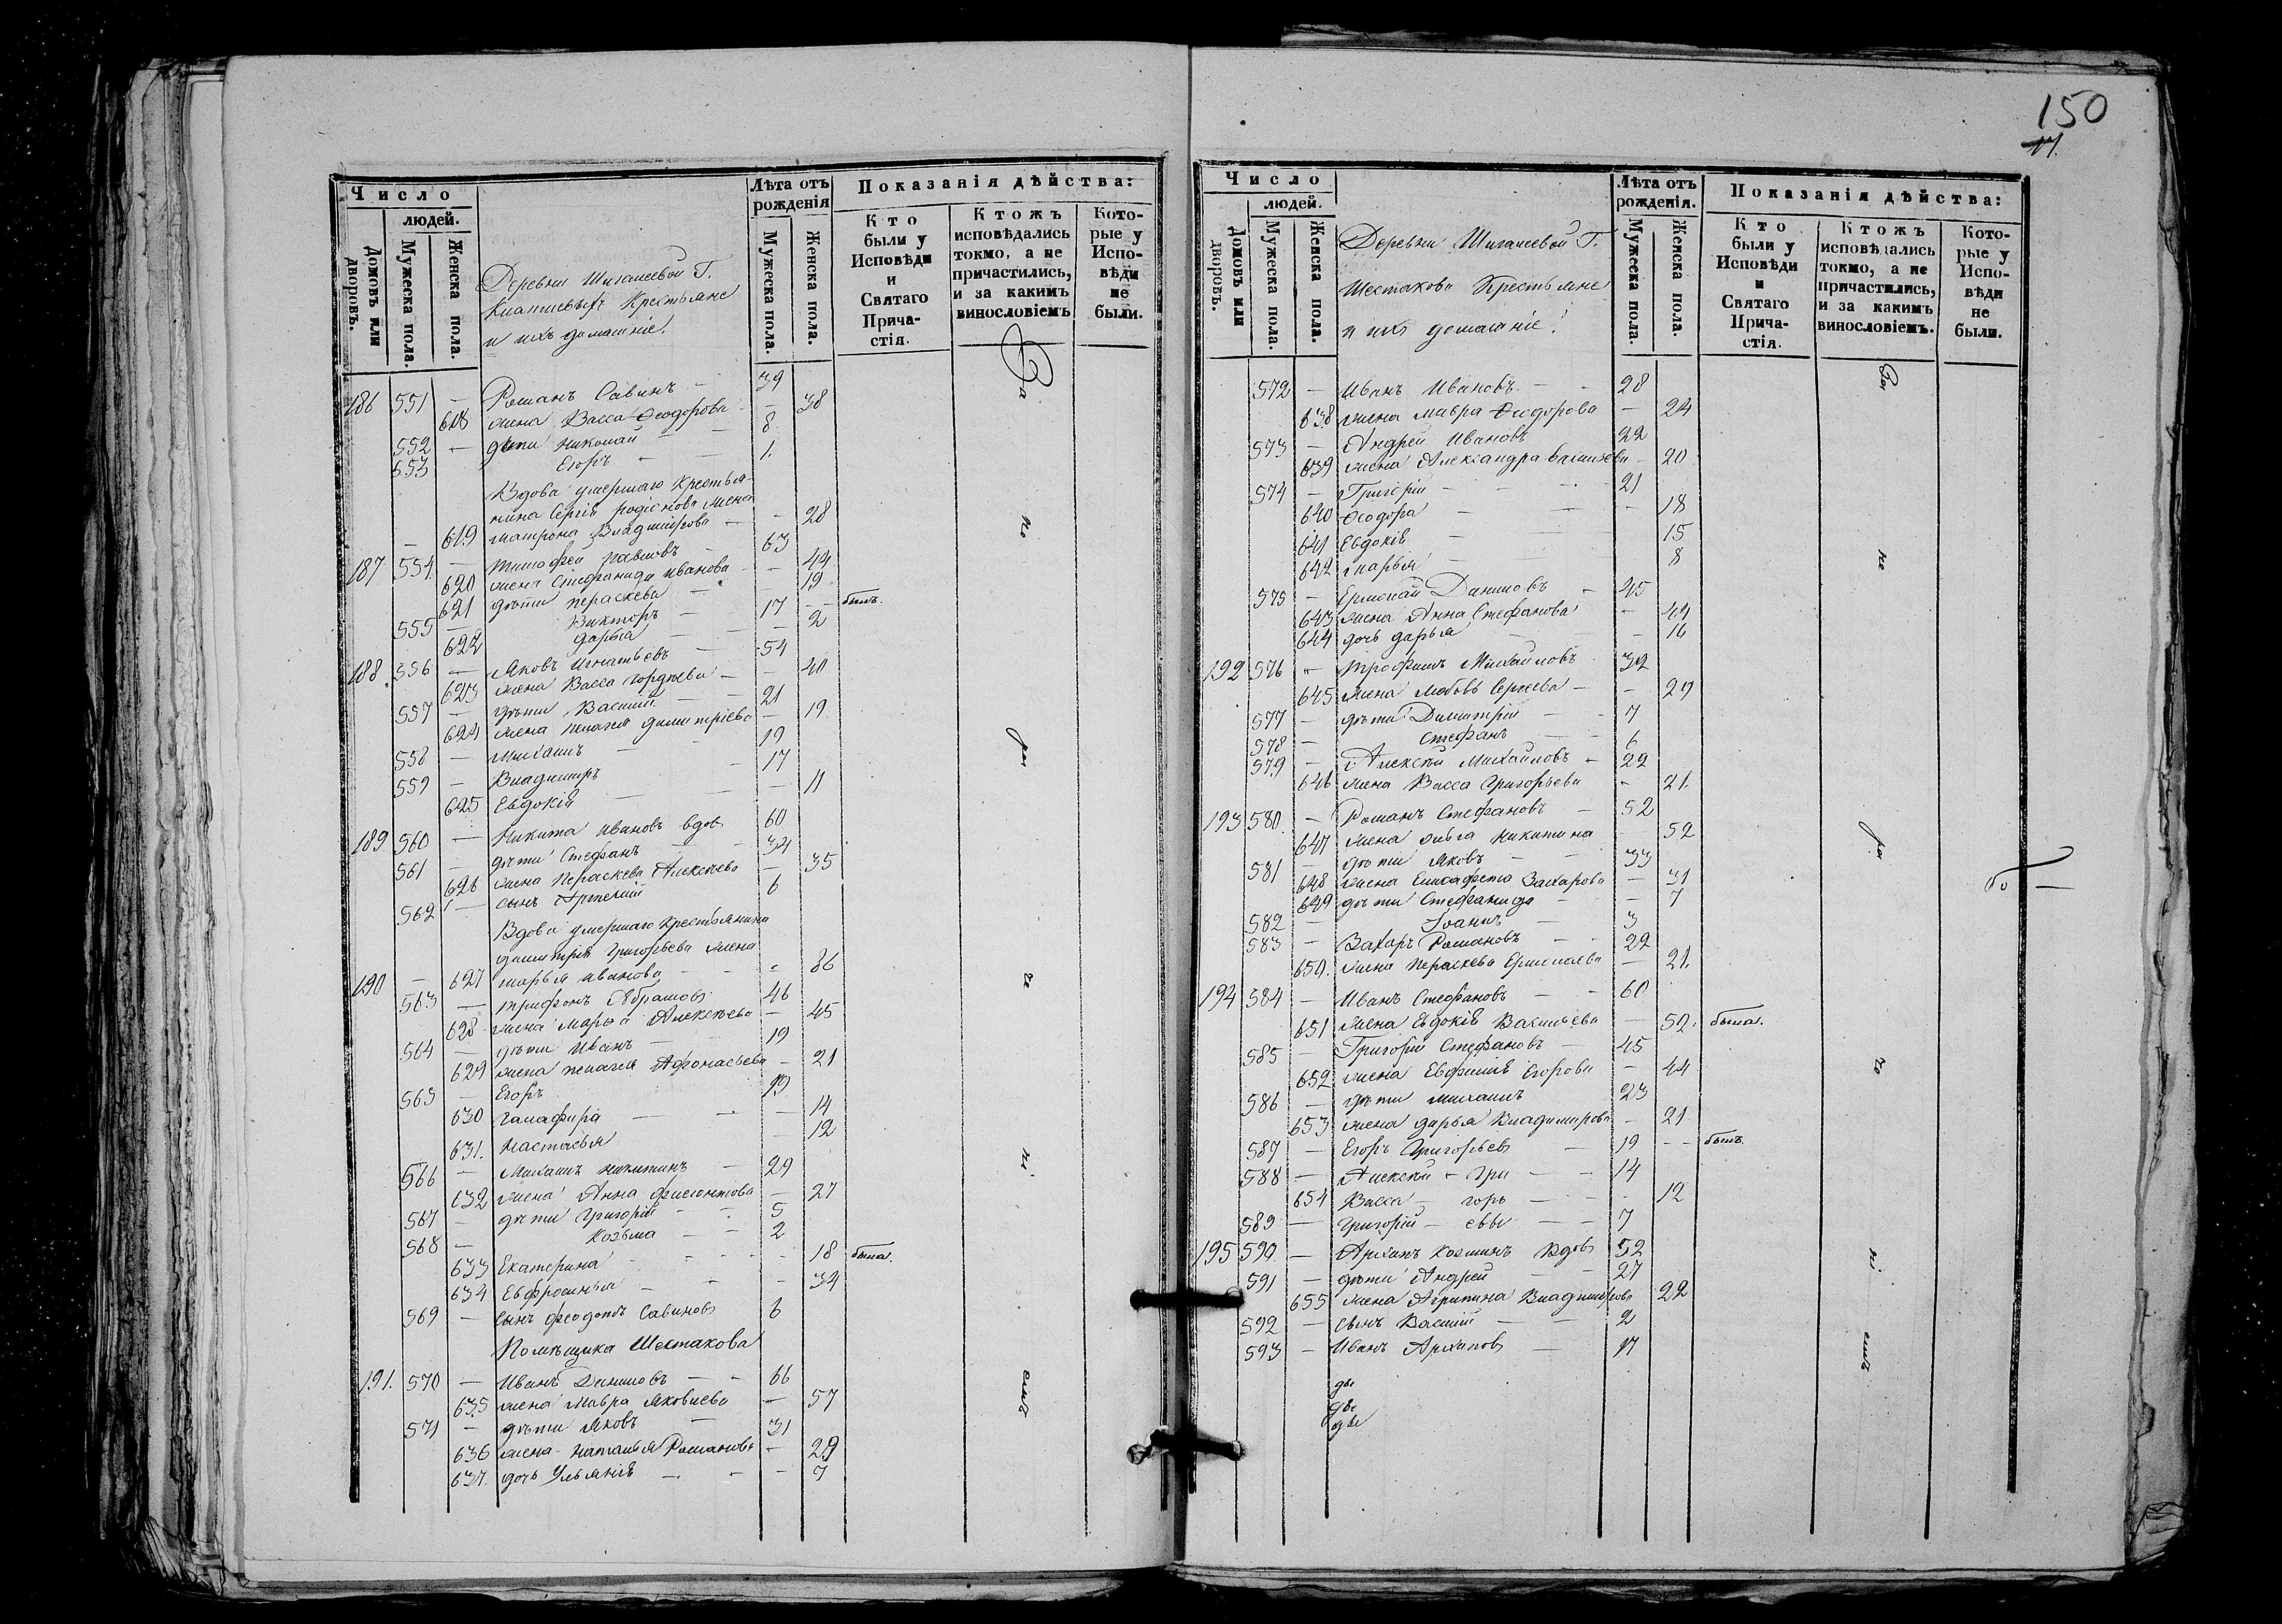 150
17.
Число
людей.
Домовъ или дворовъ.
Мужеска пола.
Женска пола.
Деревни Шигаиевой Г.
Крестьяне
и ихъ домашніе.
Лѣта отъ рожденія
Мужеска пола.
Женска пола.
Показанія дѣйства:
Кто были у Исповѣди и Святаго Прича-стія.
Ктожъ исповѣдались токмо, а не причастились, и за какимъ винословіемъ
Кото-рые у Испо-вѣди не были.
186 551 — Романъ Савинъ — 39
618 жена Васса Ѳеодорова — 38
552 — дѣти Николай — 8
553 Егоръ — 1.
Вдова умершаго крестья-
нина Сергія Родіонова жена
619 Матрона Владимірова — 28
187 554 — Тимофей Павловъ — 63
620 жена Стефанида Иванова — 44
621 дѣти Параскева — 19
555 — Викторъ — 17 — былъ.
622 Дарья — 2
188. 556 — Яковъ Игнатьевъ — 54
623 жена Васса Гордѣева — 40
557 — дѣти Василій — 21
624 жена Пелагія Димитріева — 19
558 — Михаилъ — 19
559 — Владиміръ — 17
625 Евдокія — 11
189 560 — Никита Ивановъ вдов 60
561 — дѣти Стефанъ — 34
626 жена Параскева Алексѣева — 35
562 — сынъ Артемій 6
Вдова умершаго крестьянина
Димитрія Григорьева жена
190 — 627 Марья Иванова — 86
563 — Трифонъ Абрамовъ 46
628 жена Марѳа Алексѣева — 45
564 — дѣти Иванъ — 19
629 жена Пелагія Афонасьева — 21
565 — Егоръ 19
630 Галафира — 14
631. Настасья — 12
566 — Михаилъ Никитинъ — 29
632 жена Анна — 27
567 — дѣти Григорій — 5
568 — Козьма — 2
633 Екатерина — 18 была.
634 Евфросинья — 34
569 — сынъ Феодотъ Савиновъ 6
Помѣщика Шестакова
191. 570 — Иванъ Даниловъ — 66
635 жена Мавра Яковлева — 57
571 — дѣти Яковъ — 31
636 жена Наталья Романова — 29
637. дочь Ульянія — 7
Число
людей.
Домовъ или дворовъ.
Мужеска пола.
Женска пола.
Деревни Шигаиевой Г.
Шестакова Крестьяне
и ихъ домашніе.
Лѣта отъ рожденія.
Мужеска пола.
Женска пола.
Показанія дѣйства:
Кто были у Исповѣди и Святаго Прича-стія.
Ктожъ исповѣдались токмо, а не причастились, и за какимъ винословіемъ.
Кото-рые у Испо-вѣди не были.
572 — Иванъ Ивановъ — 28
638 жена Мавра Ѳеодорова — 24
573 — Андрей Ивановъ 22
639 жена Александра Васильева — 20
574 — Григорій — 21
640 Ѳеодора — 18
641 Евдокія — 15
642 Марья — 8
575 — Ермолай Даниловъ — 45
643 жена Анна Стефанова — 44
644 дочь Дарья — 16
192 576 — Трофимъ Михайловъ 32
645 жена Любовь Сергѣева — 27
577 — дѣти Димитрій — 7
578 — Стефанъ — 6
579 — Алексѣй Михайловъ — 22
646 жена Васса Григорьева — 21.
193 580. — Романъ Стефановъ — 52
647 жена Ольга Никитина 52
581 — дѣти Яковъ — 33
648 жена Елисафета Захарова — 31
649 дѣти Стефанида — 7
582 — Іоаннъ — 3
583 — Захаръ Романовъ — 22
650. жена Параскева Ермолаева — 21.
194 584 — Иванъ Стефановъ — 60
651 жена Евдокія Васильева — 52. была.
585 — Григорій Стефановъ — 45
652 жена Евфимія Егорова — 44
586 — дѣти Михаилъ 23
653 жена Дарья Владимирова — 21
587 — Егоръ Григорьевъ — 19 — былъ
588 — Алексѣй — Гри — 14
654 Васса — горь — 12
589 — Григорій — евы — 7
195 590 — Архипъ Козминъ вдов 52
591 — дѣти Андрей — 27
655 жена Агрипина Владимирова 22
592 — сынъ Василій — 2
593 — Иванъ Архиповъ — 17